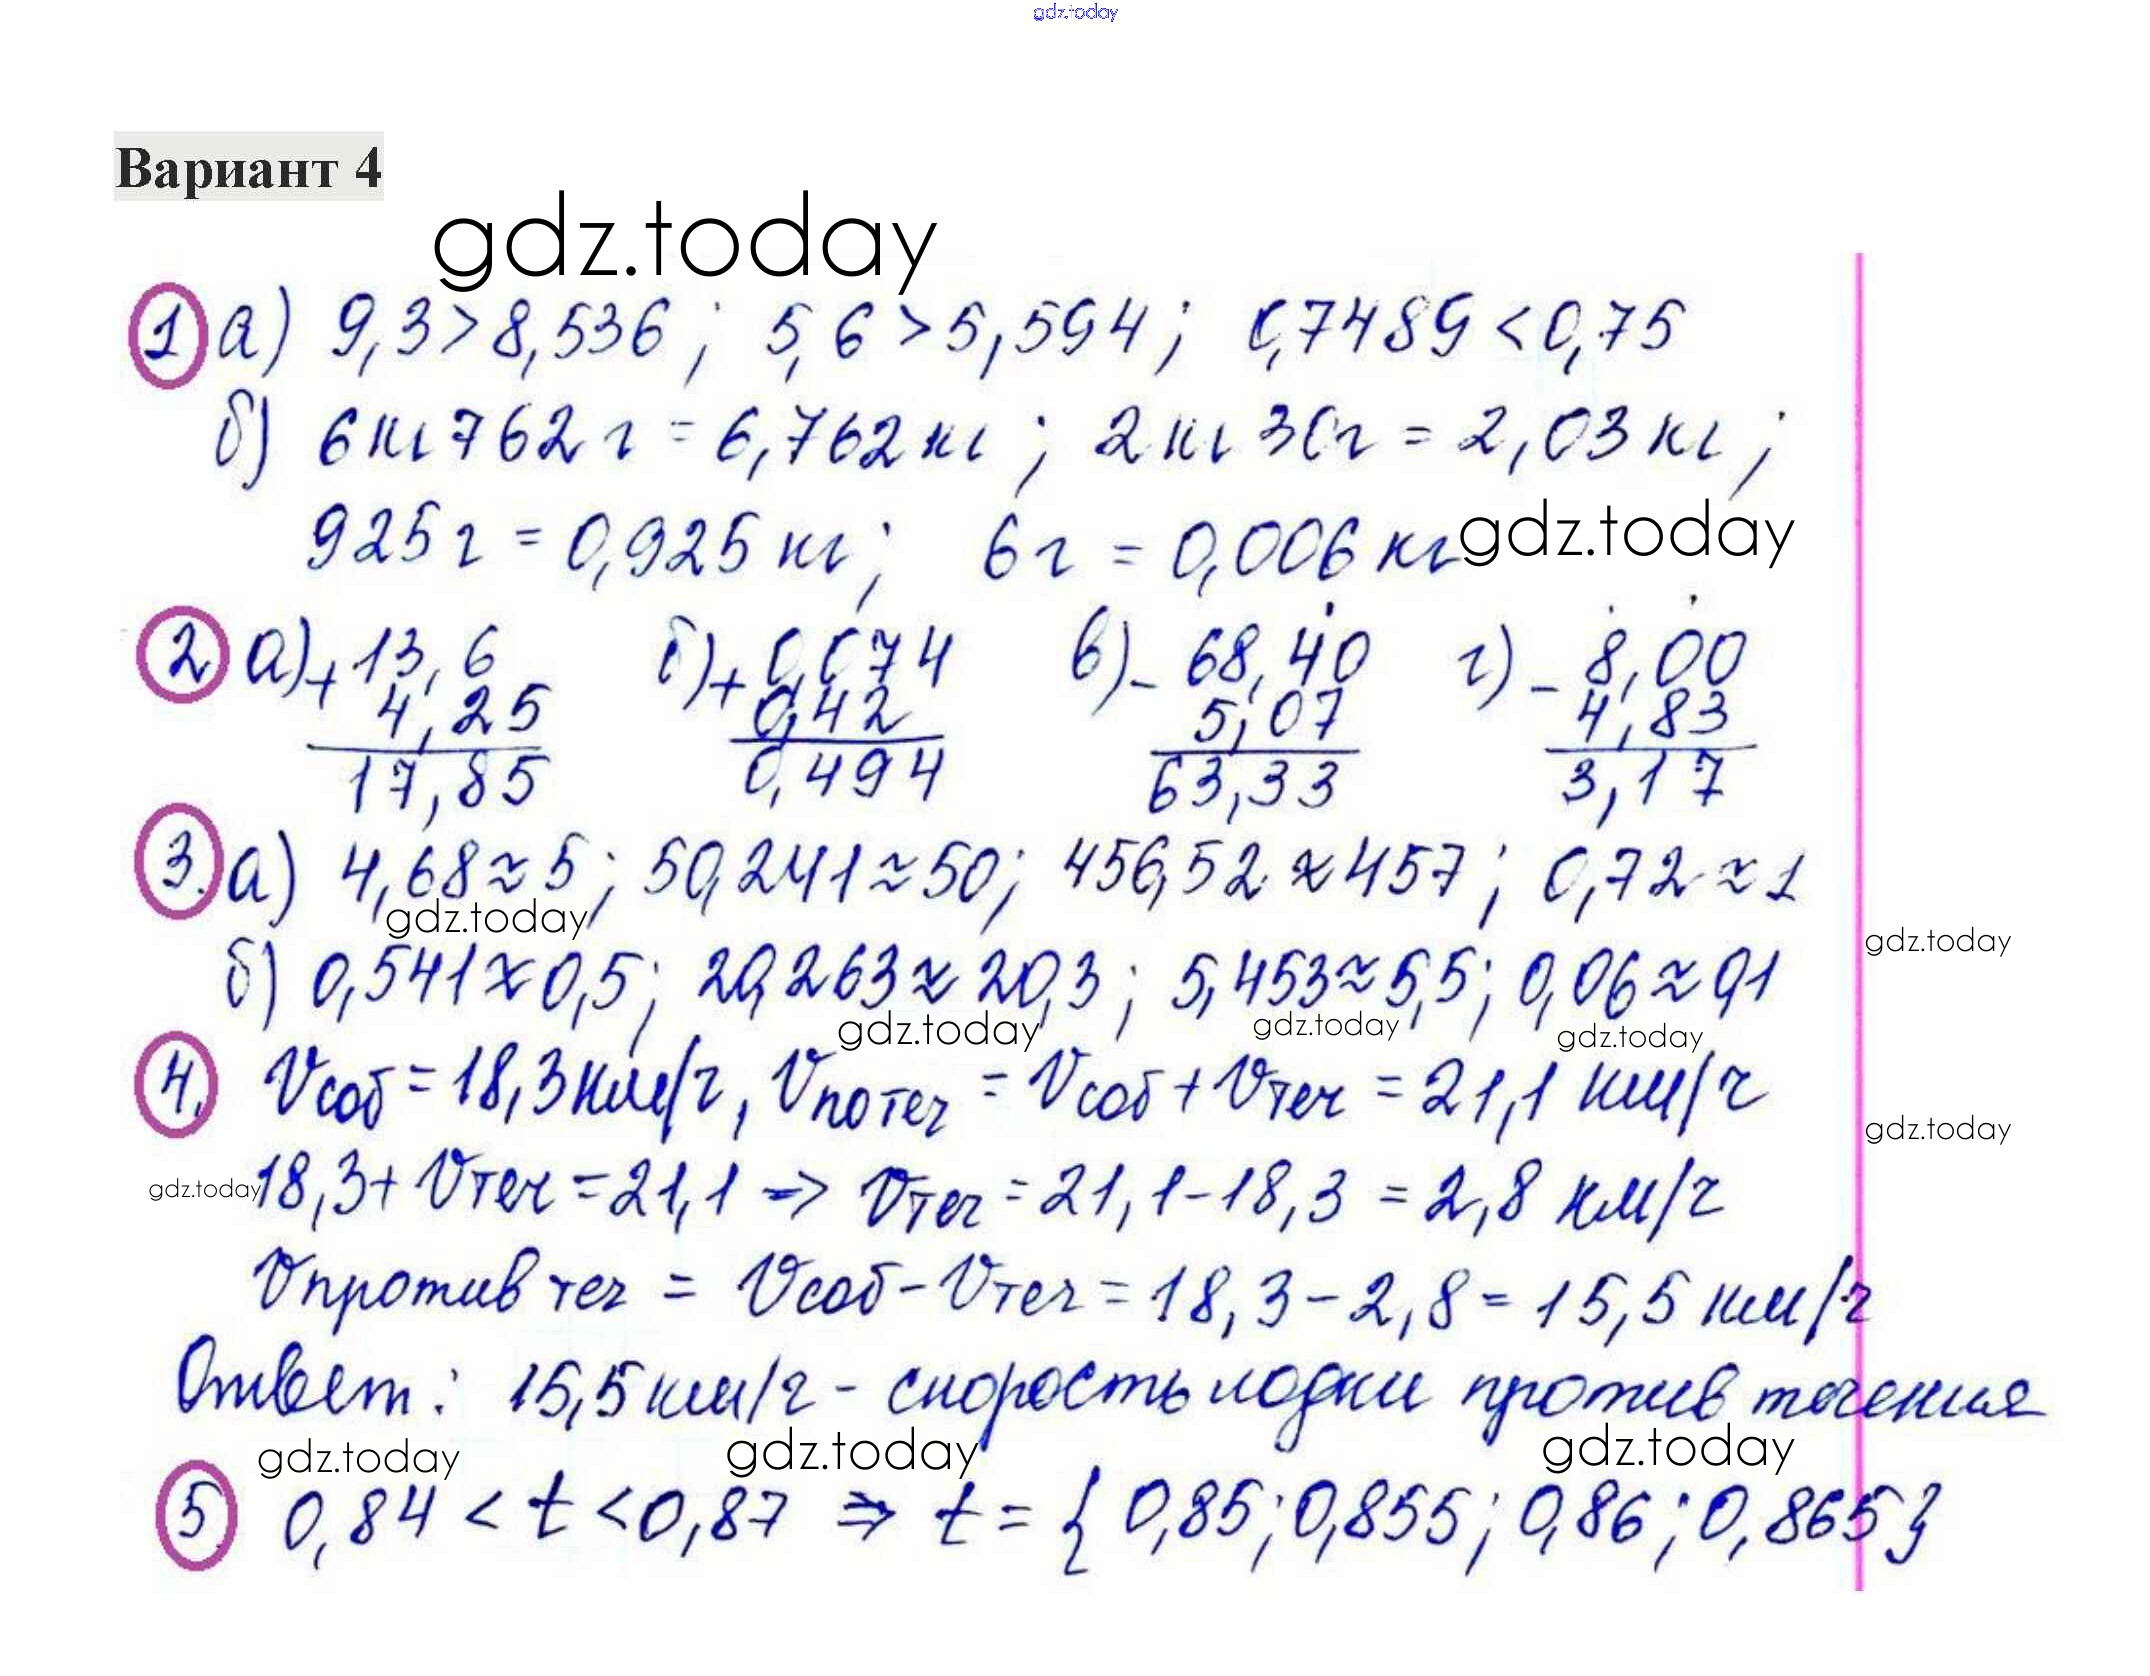 gdz.today
Вариант 4
gdz.today
1 а) 9,3 > 8,536 ; 5,6 > 5,594 ; 0,7489 < 0,75
б) 6 кг 762 г = 6,762 кг ; 2 кг 30 г = 2,03 кг ;
925 г = 0,925 кг ; 6 г = 0,006 кг gdz.today
2 а) + 13,6 б) + 0,074 в) - 68,40 г) - 8,00
4,25 0,42 5,07 4,83
17,85 0,494 63,33 3,17
3. а) 4,68 ≈ 5 ; 50,241 ≈ 50 ; 456,52 ≈ 457 ; 0,72 ≈ 1
gdz.today
gdz.today
б) 0,541 ≈ 0,5 ; 20,263 ≈ 20,3 ; 5,453 ≈ 5,5 ; 0,06 ≈ 0,1
gdz.today gdz.today gdz.today
4. Vсоб = 18,3 км/г, Vпо теч = Vсоб + Vтеч = 21,1 км/ч
gdz.today
gdz.today 18,3 + Vтеч = 21,1 => Vтеч = 21,1 - 18,3 = 2,8 км/ч
Vпротив теч = Vсоб - Vтеч = 18,3 - 2,8 = 15,5 км/ч
Ответ: 15,5 км/ч - скорость лодки против течения
gdz.today gdz.today gdz.today
5 0,84 < t < 0,87 => t = { 0,85 ; 0,855 ; 0,86 ; 0,865 }